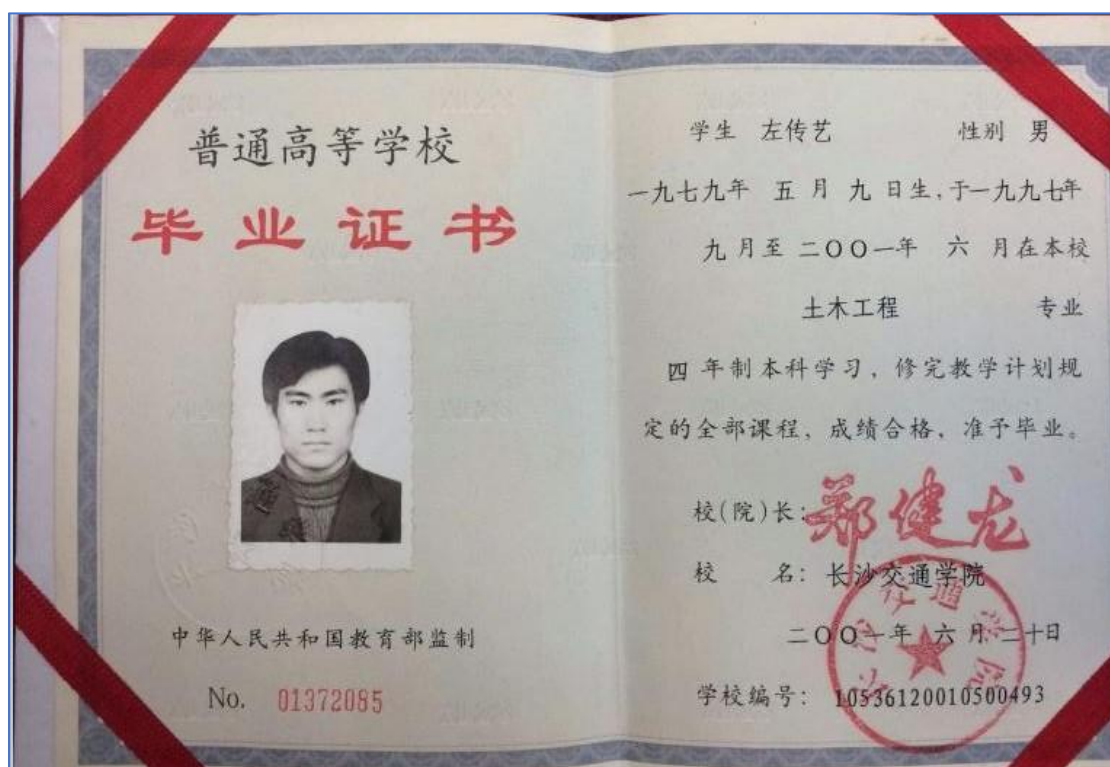 普通高等学校
毕业证书
中华人民共和国教育部监制
No. 01372085
学生 左传艺 性别 男
一九七九年 五 月 九 日生,于一九九七年
九 月至 二〇〇一年 六 月在本校
土木工程 专业
四 年制本科学习，修完教学计划规
定的全部课程，成绩合格，准予毕业。
校(院)长: 郑健龙
校 名: 长沙交通学院
二〇〇一年 六 月 二十日
长沙交通学院
学校编号: 10536120010500493